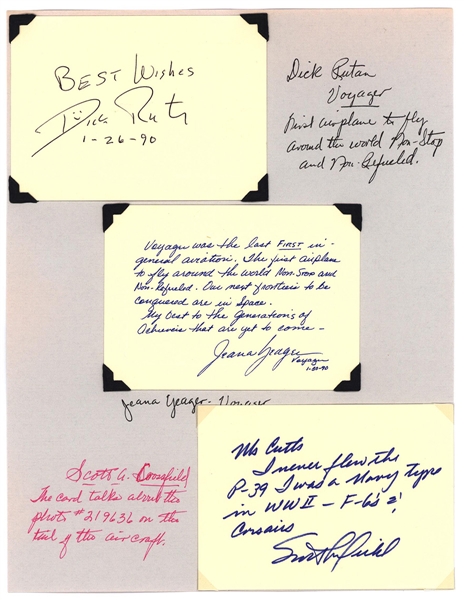 BEST WISHES
Dick Rutan
1-26-90
Dick Rutan
Voyager
First airplane to fly
around the world Non-Stop
and Non-Refueled.
Voyager was the last FIRST in
general aviation. The first airplane
to fly around the world Non Stop and
Non-Refueled. Our next frontiers to be
conquered are in Space.
My best to the Generations of
Achievers that are yet to come -
Jeana Yeager
Voyager
1-22-90
Jeana Yeager - Voyager
Scott A. Crossfield
The card talks about the
photo #219636 on the
tail of the aircraft.
Ms Cutts
I never flew the
P-39 I was a Navy type
in WW II - F-6s &
Corsairs
Scott Crossfield